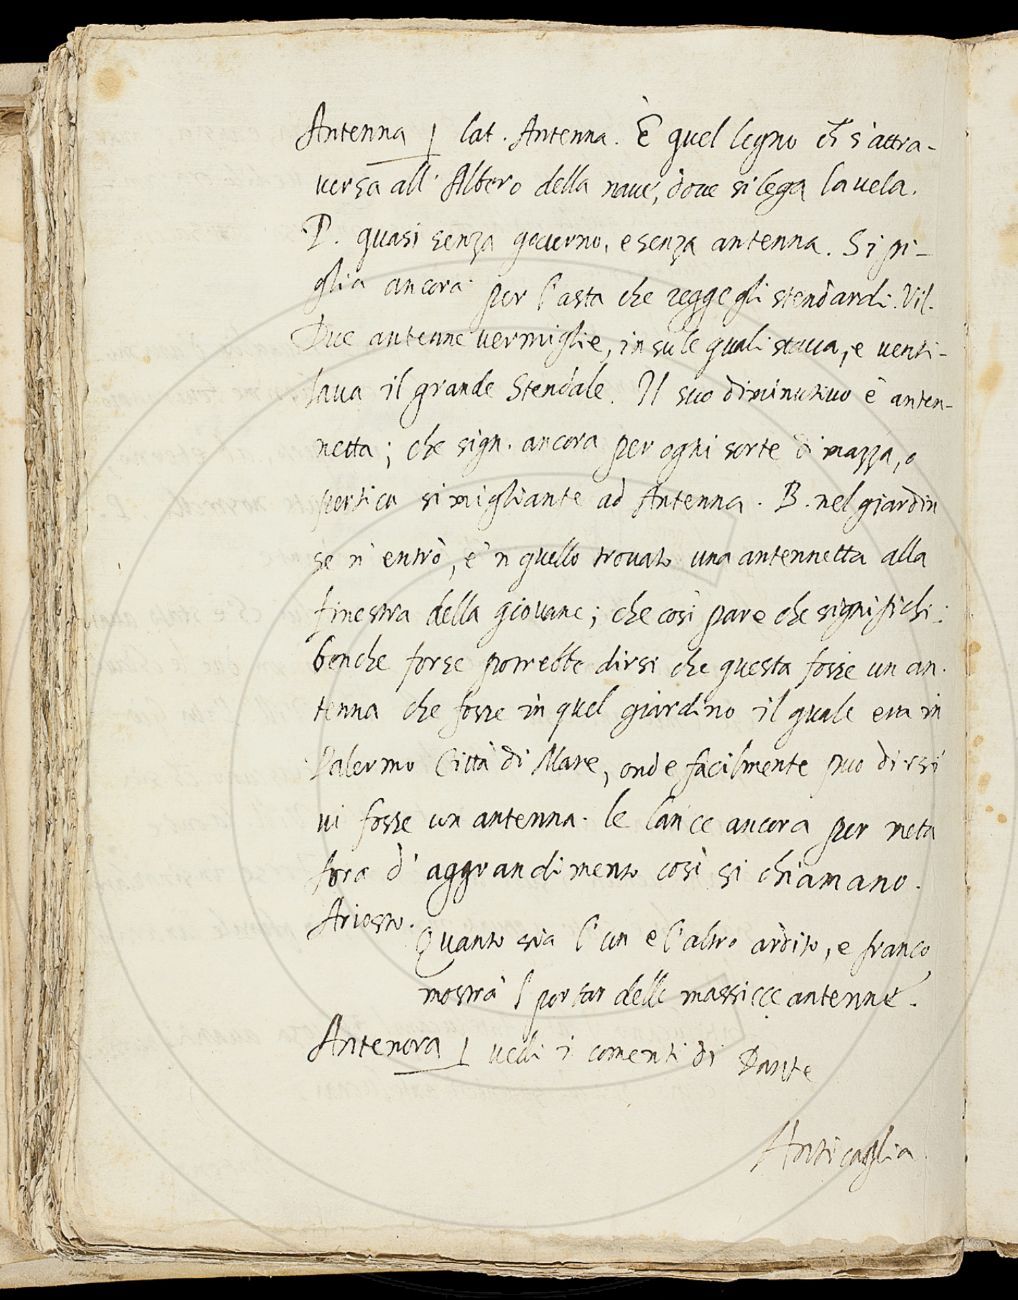 Antenna | lat. Antenna. È quel legno ch̃ s'attra-
versa all' Albero della nave, dove si lega la vela.
P. quasi senza governo, e senza antenna. Si pi-
glia ancora per l'asta che regge gli stendardi. Vil.
Due antenne vermiglie, in su le quali stava, e venti-
lava il grande Stendale. Il suo diminutivo è anten-
netta; che sign. ancora per ogni sorte di mazza, o
pertica simigliante ad Antenna. B. nel giardin
se n' entrò, e 'n quello trovato una antennetta alla
finestra della giovane; che così pare che significhi:
benche forse potrebbe dirsi che questa fosse un an-
tenna che fosse in quel giardino il quale era in
Palermo Città di Mare, onde facilmente puo dirsi
vi fosse un antenna. le lance ancora per meta
fora d' aggrandimento così si chiamano.
Ariosto.
Quanto sia l'un e l'altro ardito, e franco
mostra 'l portar delle massicce antenne.
Antenora | vedi i comenti di Dante
Anticaglia.